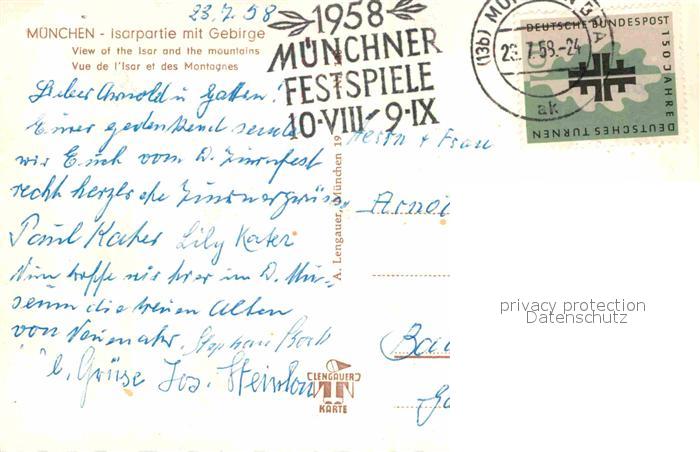 23.7.58
MÜNCHEN - Isarpartie mit Gebirge
View of the Isar and the mountains
Vue de l'Isar et des Montagnes
1958
MÜNCHNER
FESTSPIELE
10·VIII - 9·IX
(13b) MÜNCHEN
23.7.58.-24
ak
DEUTSCHE BUNDESPOST
150 JAHRE
DEUTSCHES TURNEN
Lieber Arnold u. Gatten!
Eurer gedenkend senden
wir Euch vom D. Turnfest
recht herzliche Turnergrüsse
Paul Kater Lily Kater
Nun hoffe wir hier im D. Mu-
seum die treuen Alten
von Neuenahr. Stephan
b. Grüsse Jos.
Herrn + Frau
Arnol
A. Lengauer, München 19
LENGAUER
KARTE
privacy protection
Datenschutz